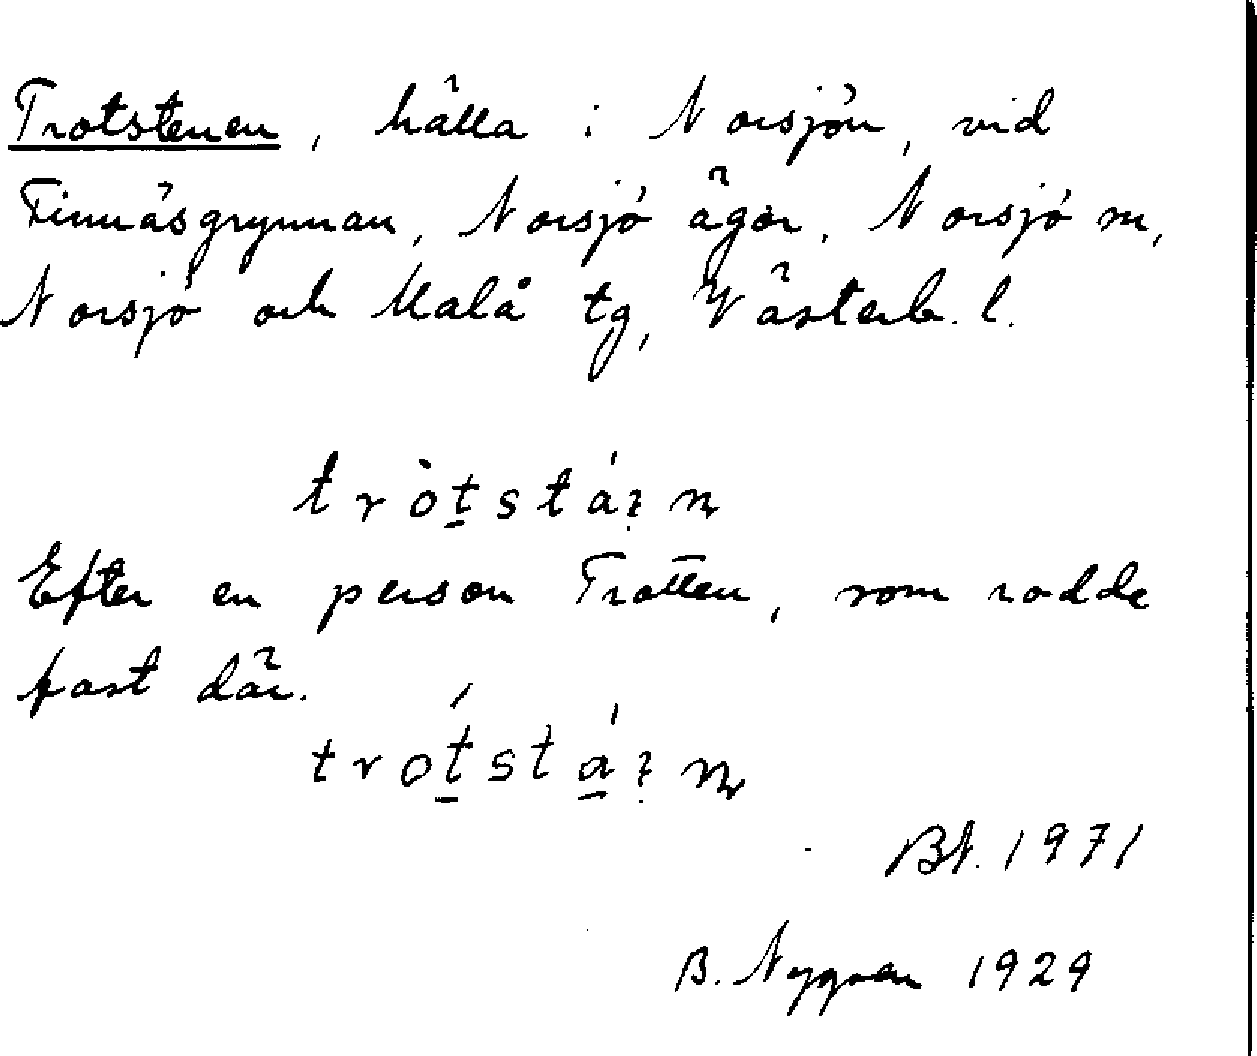 Trotstenen, hälla i Norsjön, vid
Finnäsgrynnan, Norsjö ägor, Norsjö sn,
Norsjö och Malå tg, Västerb. l.
tròt̠stáɿn
Efter en person Trotten, som rodde
fast där.
trót̠stá̠ɿn
Bt. 1971
B. Nygren 1929